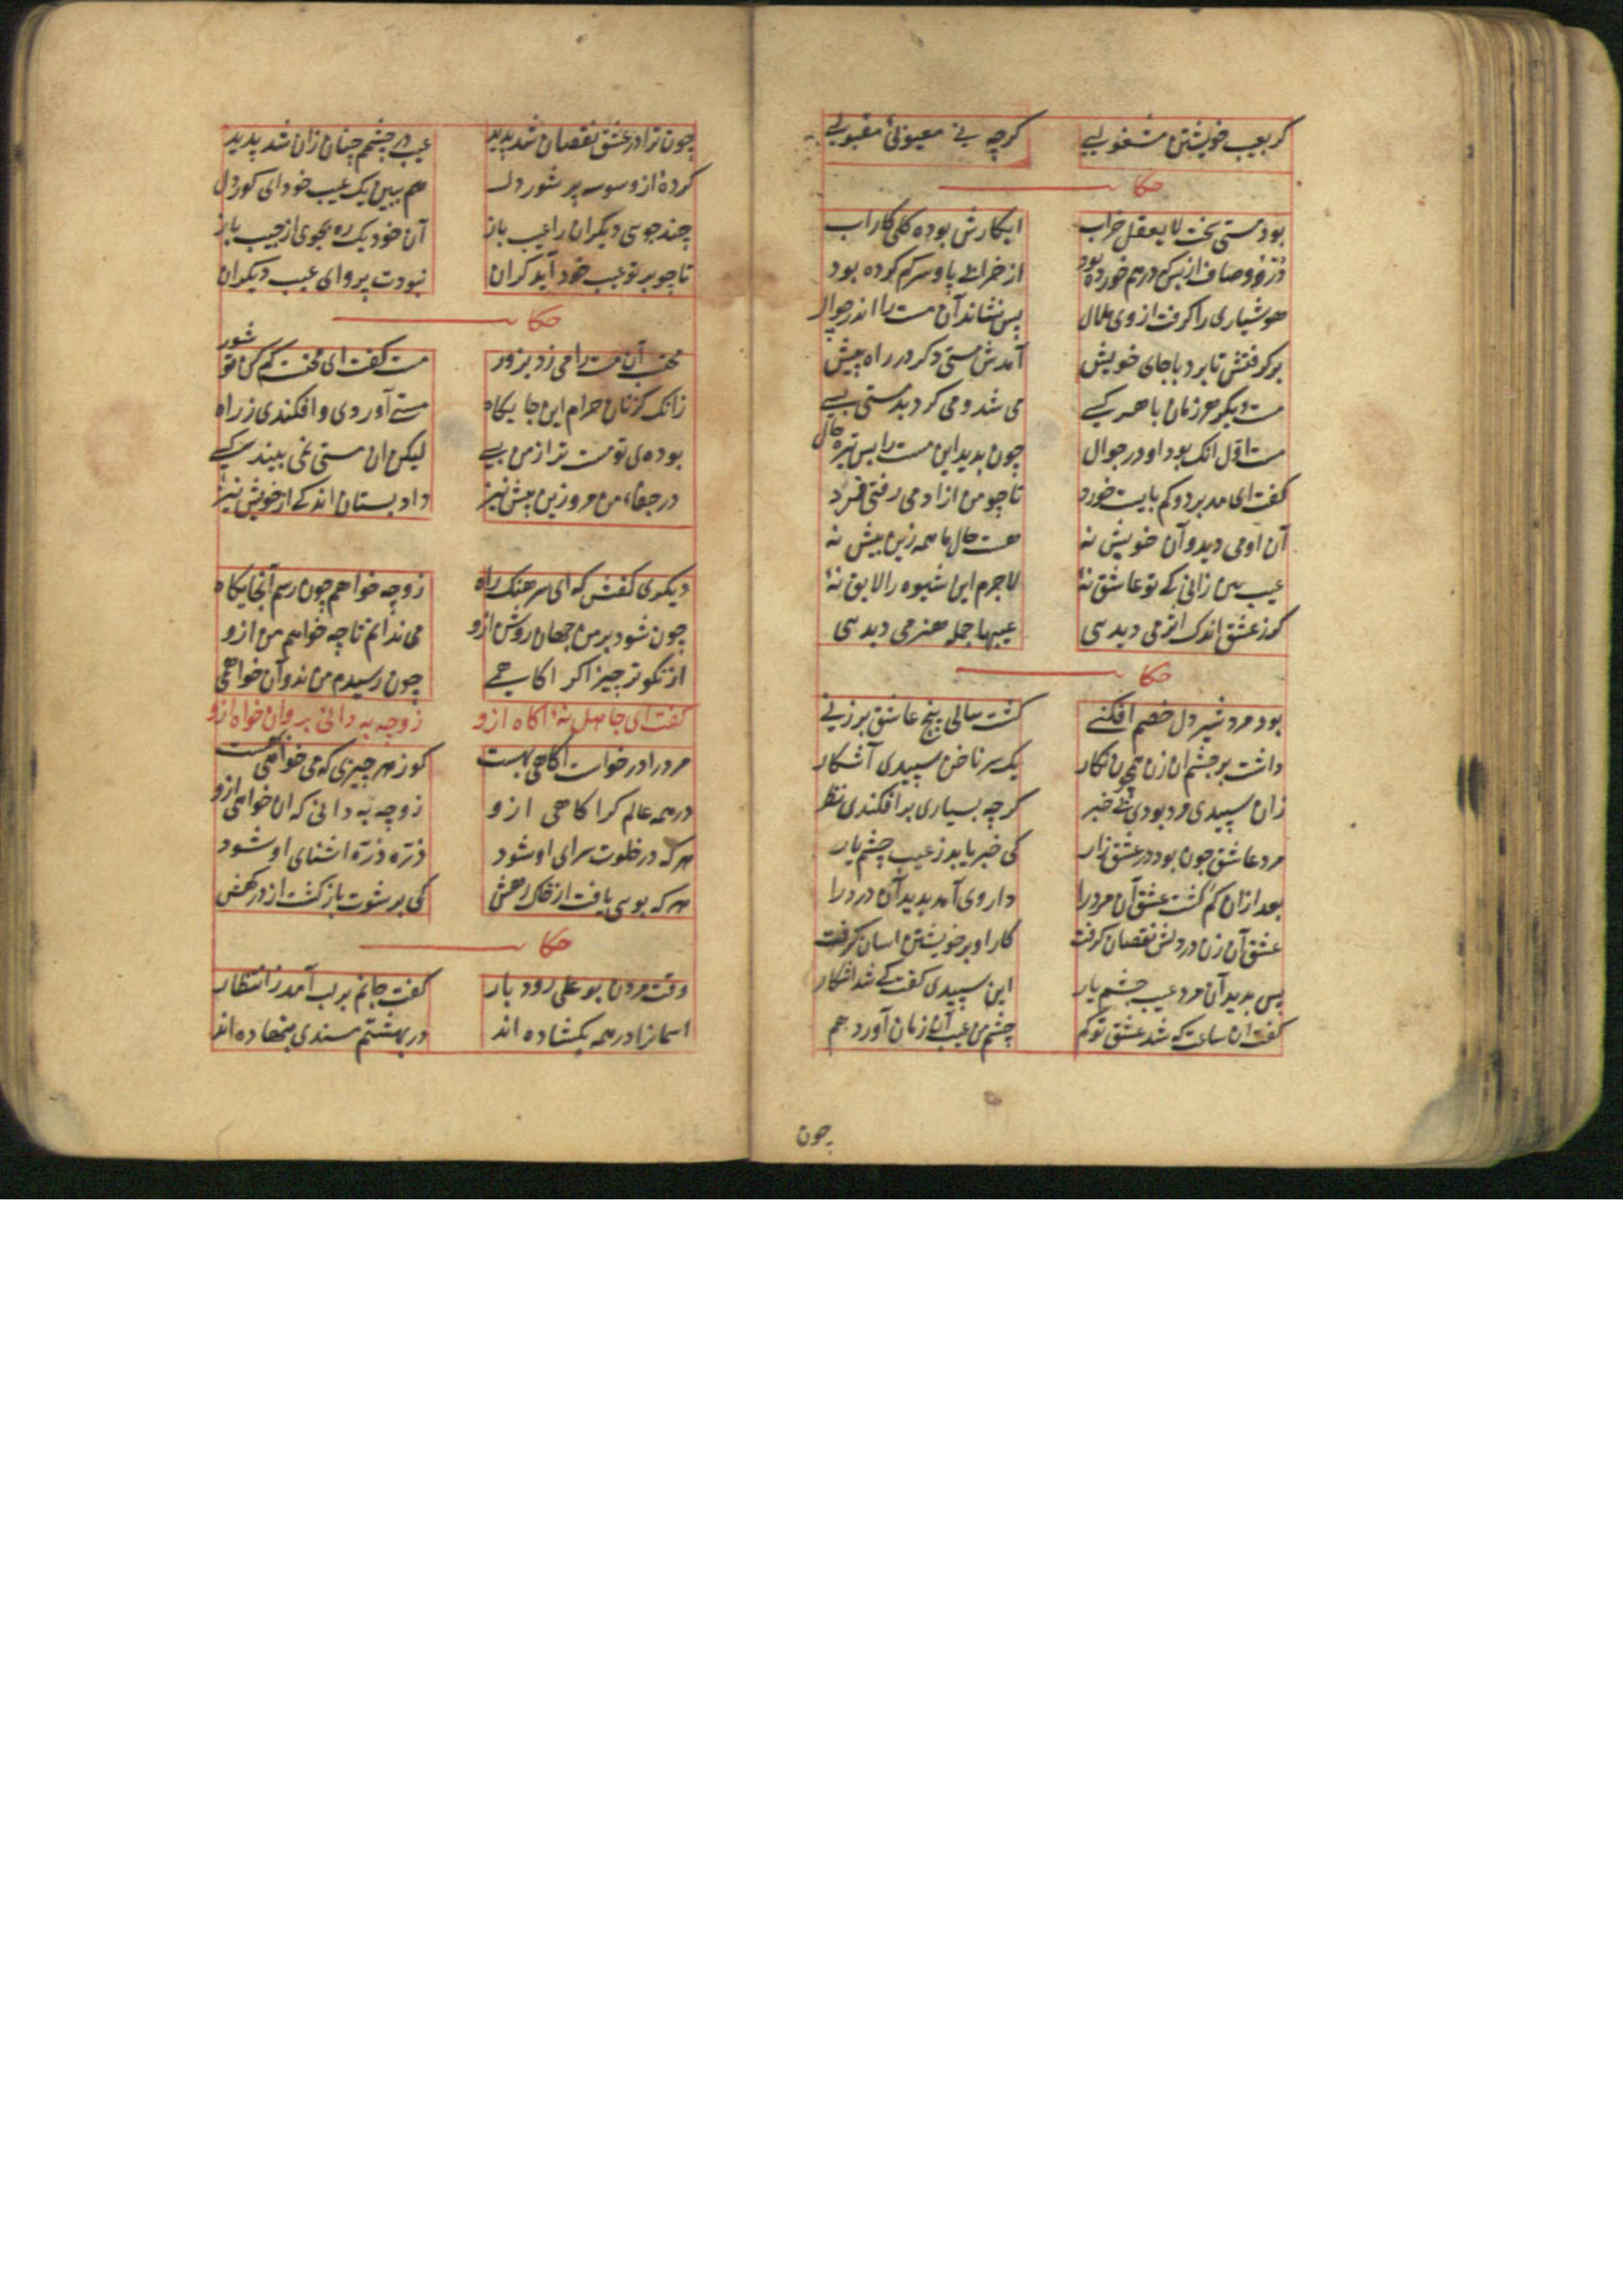 كر بعيب خويشتن مشغولیی كرچه بی معيوبیٔ مقبولیی
حكا
بود مستی سخت لا يعقل خراب ابكارش بوده كلی كار اب
درد و صاف از بس كه درهم خورده بود از خرابی پا و سر كم كرده بود
هوشياری را كرفت از وی ملال پس نشاند آن مست را اندر جوال
بركرفتش تا برد با جای خويش آمدش مستی دكر در راه پيش
مست ديكر هر زمان با هر كسی می شد و می كرد بد مستی بسی
مست اول انك بود او در جوال چون بديد اين مست را بس تيره حال
كفت ای مدبر دو كم بايست خورد تا چو من ازاد می رفتی فرد
آن او می ديد و آن خويش نه هست حال ما همه زين بيش نه
عيب بين زانی كه تو عاشق نهٔ لاجرم اين شيوه را لايق نهٔ
كر ز عشق اندك اثر می ديدسی عيبها جمله هنر می ديدسی
حكا
بود مرد شير دل خصم افكنی كشت سالی پنج عاشق بر زنی
داشت بر چشم ان زن همچون نكار يك سر ناخن سپيدی آشكار
زان سپيدی مرد بودی بی خبر كرچه بسياری برافكندی نظر
مرد عاشق چون بود در عشق زار كی خبر يابد ز عيب چشم يار
بعد ازان كم كشت عشق آن مرد را داروی آمد بديد آن درد را
عشق آن زن در دلش نقصان كرفت كار او بر خويشتن اسان كرفت
پس بديد آن مرد عيب چشم يار اين سپيدی كفت كی شد اشكار
كفت ان ساعت كه شد عشق تو كم چشم من عيب آن زمان آورد هم
چون
چون ترا در عشق نقصان شد پديد عيب در چشمم چنان زان شد پديد
كردهٔ از وسوسه پر شور دل هم ببين يك عيب خود ای كور دل
چند جوسی ديكران را عيب باز آن خود يك ره بجوی از جيب باز
تا چو بر تو عيب خود آيد كران نبودت پروای عيب ديكران
حكا
محتسب آن مست را می زد بزور مست كفت ای محتسب كم كن تو شور
زانك كز نان حرام اين جايكاه مستی آوردی و افكندی ز راه
بودهی تو مست تر از من بسی ليكن ان مستی نمی بيند كسی
در جفاء من مرو زين پيش نيز داد بستان اندكی از خويش نيز
ديكری كفتش كه ای سرهنك راه زو چه خواهم چون رسم آنجايكاه
چون شود بر من جهان روشن ازو می ندانم تا چه خواهم من ازو
از نكوتر چيز اكر اكاهمی چون رسيدم من بدو آن خواهمی
كفت ای جاهل نهٔ اكاه ازو زو چه به دانی برو ان خواه ازو
مرد را در خواست اكاهی بهست كو ز هر چيزی كه می خواهی بهست
در همه عالم كر اكاهی ازو زو چه به دانی كه ان خواهی ازو
هر كه در خلوت سرای او شود ذره ذره اشنای او شود
هر كه بوسی يافت از خاك رهش كی برشوت باز كشت از دركهش
حكا
وقت مردن بو علی رودبار كفت جانم بر لب آمد ز انتظار
اسمانرا در همه بكشاده اند در بهشتم مسندی بنهاده اند